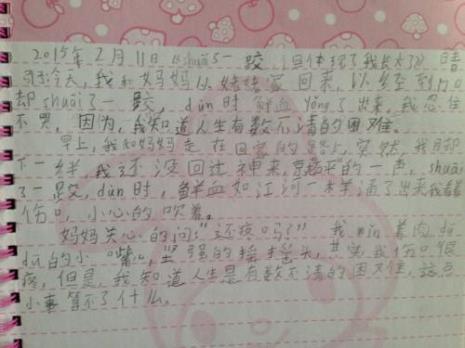 2015年2月11日 shuāi一跤,但体现了我长大了。晴
今天,我和妈妈从姥姥家回来,以经到门口
却shuāi了一跤,dùn时鲜血yǒng了出来,我忍住
不哭,因为,我知道人生有数不清的困难。
早上,我和妈妈走在回家的路上,突然,我脚
下一绊,我还没回过神来,的一声,shuāi
了一跤,dùn时,鲜血如江河一样涌了出来我看着
伤口,小心的吹着。
妈妈关心的问:“还疼吗?”我着肉dū
dū的小嘴,坚强的摇摇头,其实我伤口很
疼,但是,我知道人生是有数不清的困难,这点
小事算不了什么。